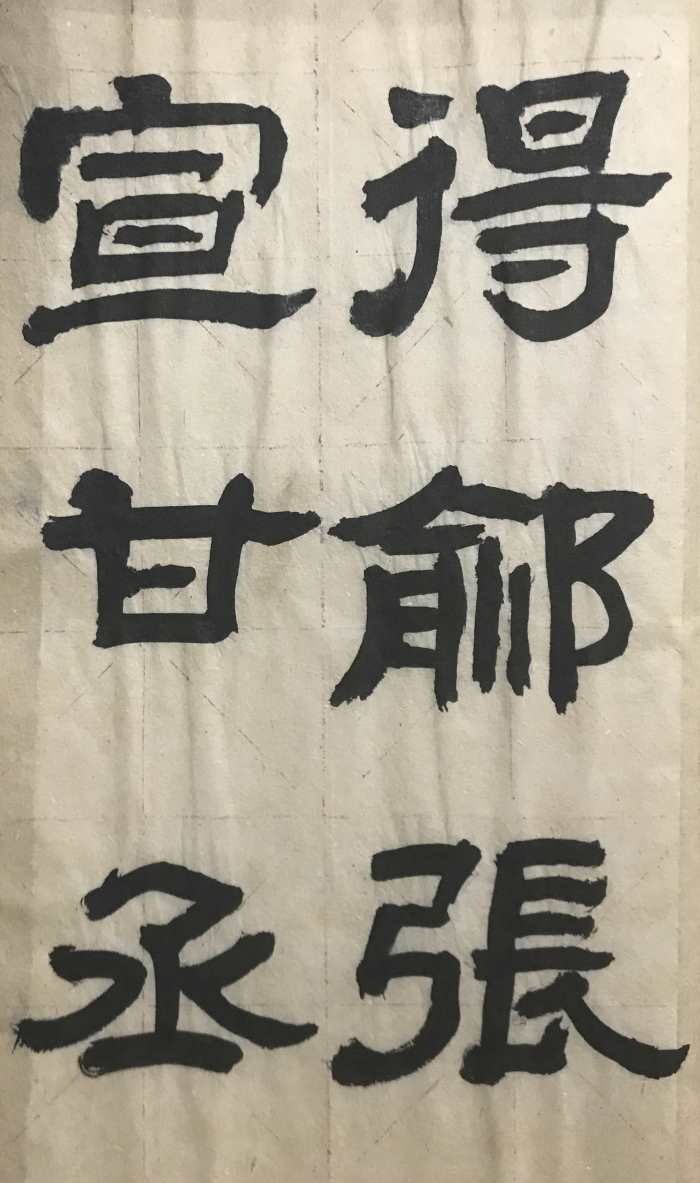 得鄃張
宣甘丞